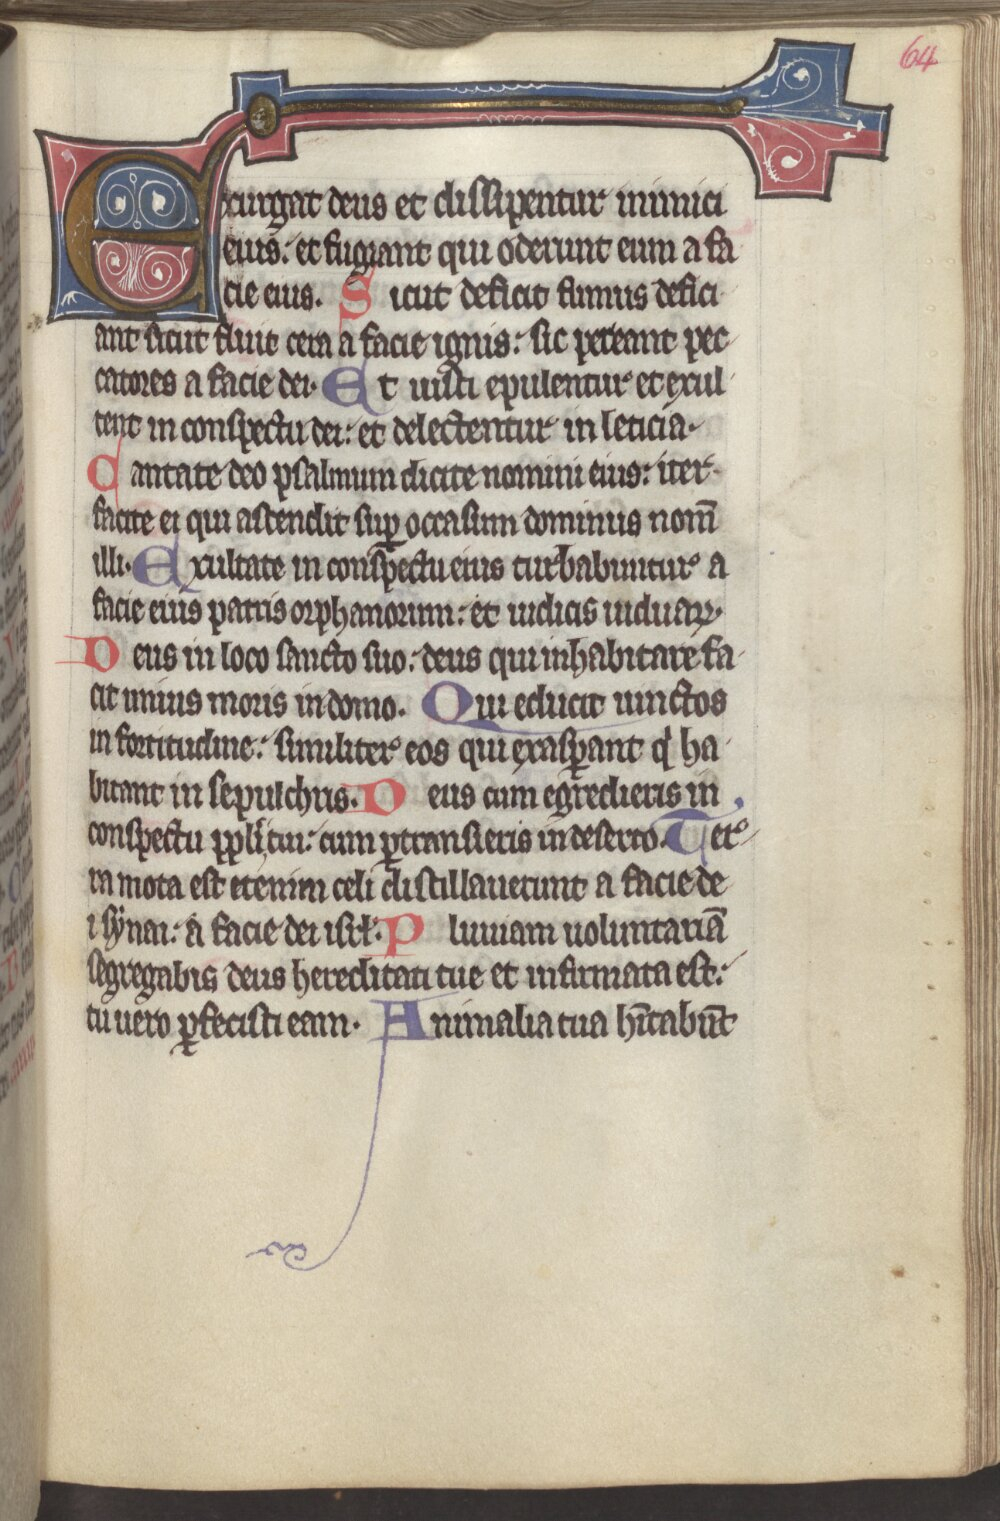 64
Excurgat deus et dissipentur inimici
eius: et fugiant qui oderunt eum a fa
cie eius. Sicut deficit fumus defici
ant sicut fluit cera a facie ignis: sic pereant pec
catores a facie dei. Et iusti epulentur et exul
tent in conspectu dei: et delectentur in leticia.
Cantate deo psalmum dicite nomini eius: iter
facite ei qui ascendit sup̄ occasum dominus nom̄
illi. Exultate in conspectu eius turbabuntur a
facie eius patris orphanorum: et iudicis uiduaꝝ.
Deus in loco sancto suo: deus qui inhabitare fa
cit unius moris in domo. Qui educit uinctos
in fortitudine: similiter eos qui exasꝑant q' ha
bitant in sepulchris. Deus cum egredieris in
conspectu ppl̄i tui: cum ꝑtransieris in deserto. Ter
ra mota est etenim celi distillauerunt a facie de
i synai: a facie dei isrl̄. Pluuiam uoluntariā
segregabis deus hereditati tue et infirmata est:
tu uero ꝑfecisti eam. Animalia tua h̄itabūt